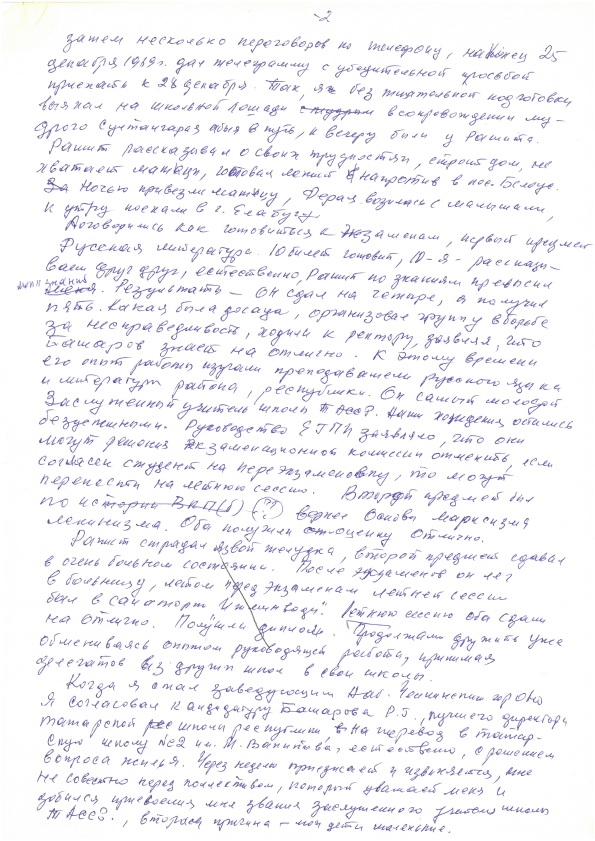 -2
затем несколько переговоров по телефону, наконец 25
декабря 1989г. дал телеграмму с убедительной просьбой
приехать к 28 декабря. Так, я без тщательной подготовки
выехал на школьной лошади в сопровождении му-
дрого Султангарая абыя в путь, к вечеру были у Рашита.
Рашит рассказывал о своих трудностях, строит дом, не
хватает матицы, готовая лежит напротив в пос. Белоус.
За Ночью привезли матицу, Ферая возилась с малышами,
к утру поехали в г. Елабугу.
Договорились как готовиться к экзаменам, первый предмет
Русская литература. 10 билет готовит, 10-я - рассказы-
ваем друг другу, естественно, Рашит по знаниям превысил
мои знания
меня. Результаты - он сдал на четыре, я получил
пять. Какая была досада, организовал группу в борьбе
за несправедливость, ходили к ректору, заявляя, что
Башаров знает на отлично. К этому времени
его опыт работы изучали преподаватели русского языка
и литературы района, республики. Он самый молодой
Заслуженный учитель школы ТАССР. Наши хождения остались
безуспешными. Руководство ЕГПИ заявляло, что они
могут решения экзаменационной комиссии отменить, если
согласен студент на переэкзаменовку, то могут
перенести на летнюю сессию. Второй предмет был
по истории ВКП(б) (??) вернее Основы Марксизма
ленинизма. Оба получили оценку отлично.
Рашит страдал язвой желудка, второй предмет сдавал
в очень больном состоянии. После экзаменов он лег
в больницу, летом перед экзаменам летней сессии
был в санатории "Ижминводы". Летнюю сессию оба сдали
на отлично. Получили дипломы. Продолжали дружить уже
обмениваясь опытом руководящей работы, принимая
делегатов из других школ в свои школы.
Когда я стал заведующим Наб. Челнинским горОНО
Я согласовал кандидатуру Башарова Р.Г., лучшего директора
татарской школы республики, на перевод в татар-
скую школу №2 им. М. Вахитова, естественно, с решением
вопроса жилья. Через неделю приезжает и извиняется, мне
не совестно перед коллективом, который уважает меня и
добился присвоения мне звания заслуженного учителя школы
ТАССР., вторая причина - мои дети маленькие.